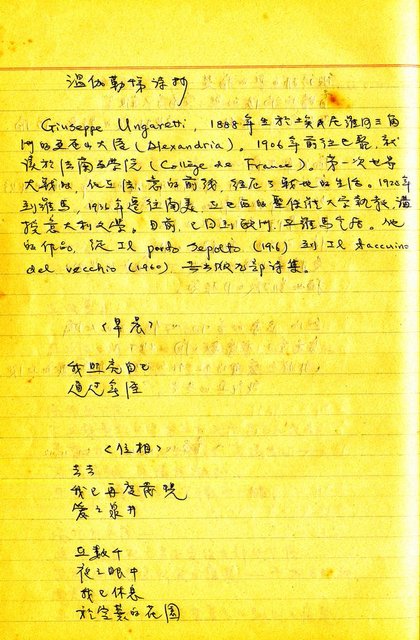 溫加勒蒂詩抄
Giuseppe Ungaretti, 1888年生於埃及尼羅河三角
州的亞历山大港(Alexandria)。1906年前往巴黎,就
讀於法蘭西學院(Collège de France)。第一次世界
大戰時,他在法、意的前線,經历了戰地的生活。1920年
到羅馬,1936年遠往南美,在巴西的聖保羅大學執教,講
授意大利文學。目前,已回到歐洲,在羅馬定居。他
的作品,從Il porto Sepolto (1916) 到 Il taccuino
del vecchio (1960),共出版九部詩集。
〈早晨〉
我照亮自己
通过無涯
〈位相〉
去去
我已再度發現
愛之泉井
在數千
夜之眼中
我已休息
於空業的花園